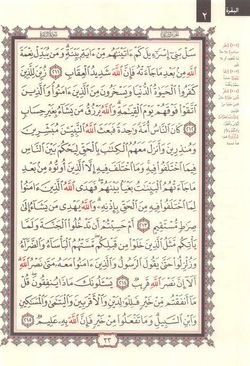 البقرة
٢
سَلْ بَنِىٓ إِسْرَٰٓءِيلَ كَمْ ءَاتَيْنَٰهُم مِّنْ ءَايَةٍۭ بَيِّنَةٍ ۗ وَمَن يُبَدِّلْ نِعْمَةَ
ٱللَّهِ مِنۢ بَعْدِ مَا جَآءَتْهُ فَإِنَّ ٱللَّهَ شَدِيدُ ٱلْعِقَابِ ٢١١ زُيِّنَ لِلَّذِينَ
كَفَرُوا۟ ٱلْحَيَوٰةُ ٱلدُّنْيَا وَيَسْخَرُونَ مِنَ ٱلَّذِينَ ءَامَنُوا۟ ۘ وَٱلَّذِينَ
ٱتَّقَوْا۟ فَوْقَهُمْ يَوْمَ ٱلْقِيَٰمَةِ ۗ وَٱللَّهُ يَرْزُقُ مَن يَشَآءُ بِغَيْرِ حِسَابٍ
٢١٢ كَانَ ٱلنَّاسُ أُمَّةً وَٰحِدَةً فَبَعَثَ ٱللَّهُ ٱلنَّبِيِّـۧنَ مُبَشِّرِينَ
وَمُنذِرِينَ وَأَنزَلَ مَعَهُمُ ٱلْكِتَٰبَ بِٱلْحَقِّ لِيَحْكُمَ بَيْنَ ٱلنَّاسِ
فِيمَا ٱخْتَلَفُوا۟ فِيهِ ۚ وَمَا ٱخْتَلَفَ فِيهِ إِلَّا ٱلَّذِينَ أُوتُوهُ مِنۢ بَعْدِ
مَا جَآءَتْهُمُ ٱلْبَيِّنَٰتُ بَغْيًۢا بَيْنَهُمْ ۖ فَهَدَى ٱللَّهُ ٱلَّذِينَ ءَامَنُوا۟
لِمَا ٱخْتَلَفُوا۟ فِيهِ مِنَ ٱلْحَقِّ بِإِذْنِهِۦ ۗ وَٱللَّهُ يَهْدِى مَن يَشَآءُ إِلَىٰ
صِرَٰطٍ مُّسْتَقِيمٍ ٢١٣ أَمْ حَسِبْتُمْ أَن تَدْخُلُوا۟ ٱلْجَنَّةَ وَلَمَّا
يَأْتِكُم مَّثَلُ ٱلَّذِينَ خَلَوْا۟ مِن قَبْلِكُم ۖ مَّسَّتْهُمُ ٱلْبَأْسَآءُ وَٱلضَّرَّآءُ
وَزُلْزِلُوا۟ حَتَّىٰ يَقُولَ ٱلرَّسُولُ وَٱلَّذِينَ ءَامَنُوا۟ مَعَهُۥ مَتَىٰ نَصْرُ ٱللَّهِ ۗ
أَلَآ إِنَّ نَصْرَ ٱللَّهِ قَرِيبٌ ٢١٤ يَسْـَٔلُونَكَ مَاذَا يُنفِقُونَ ۖ قُلْ
مَآ أَنفَقْتُم مِّنْ خَيْرٍ فَلِلْوَٰلِدَيْنِ وَٱلْأَقْرَبِينَ وَٱلْيَتَٰمَىٰ وَٱلْمَسَٰكِينِ
وَٱبْنِ ٱلسَّبِيلِ ۗ وَمَا تَفْعَلُوا۟ مِنْ خَيْرٍ فَإِنَّ ٱللَّهَ بِهِۦ عَلِيمٌ ٢١٥
٣٣